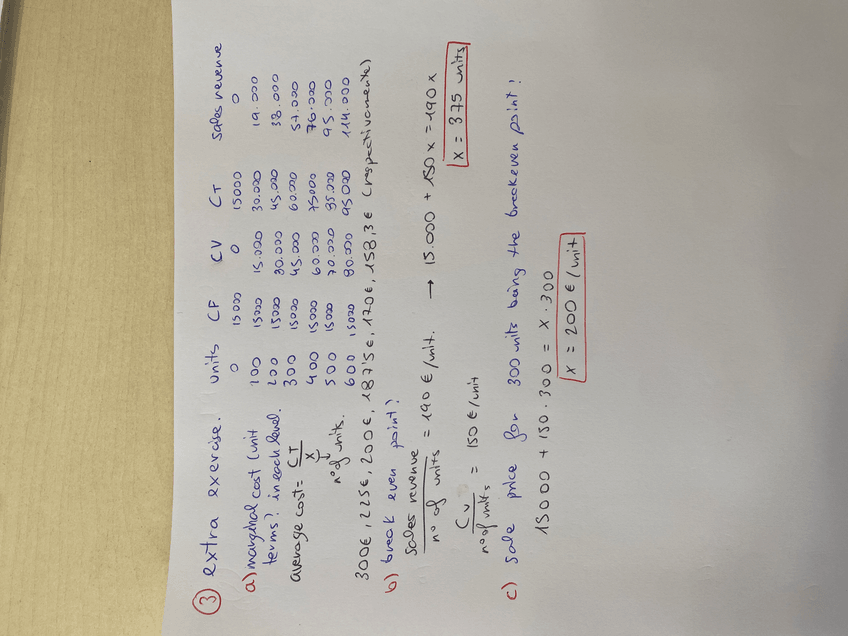 ③ extra exercise.
units CF CV CT sales revenue
0 15000 0 15000 0
a) marginal cost (unit
terms? in each level.
100 15000 15.000 30.000 19.000
200 15000 30.000 45.000 38.000
300 15000 45.000 60.000 57.000
400 15000 60.000 75000 76.000
500 15000 70.000 85.000 95.000
600 15000 80.000 95000 114.000
average cost = CT
x
nº of units.
300€, 225€, 200€, 187'5€, 170€, 158,3€ (respectivamente)
b) break even point?
sales revenue
nº of units = 190 €/unit. → 15.000 + 150x = 190x
Cv
nº of units = 150 €/unit
x = 375 units
c) Sale price for 300 units being the breakeven point?
15000 + 150.300 = x.300
x = 200 €/unit